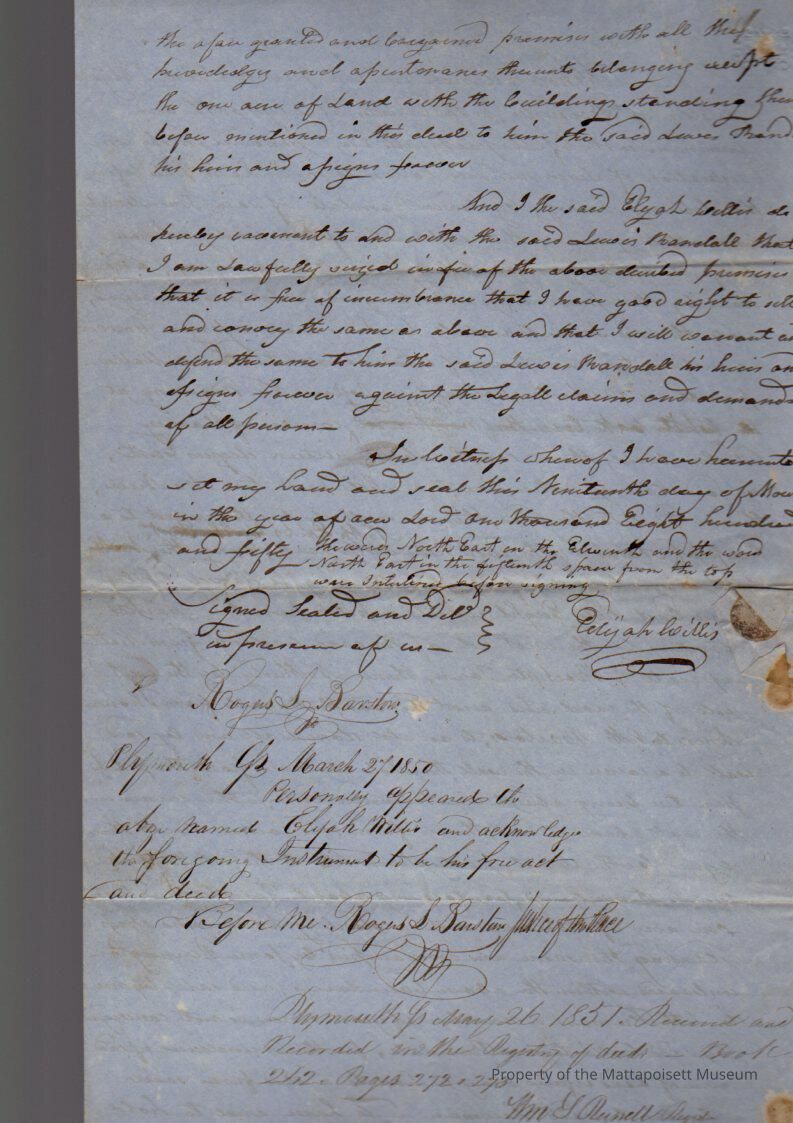 the afore granted and bargained premises with all the
priviledges and apurtonanes thereunto belonging except
the one acre of Land with the buildings standing
before mentioned in this deed to him the said Lewis Rand
his heirs and assigns forever
And I the said Elijah Willis do
hereby covenant to and with the said Lewis Randall that
I am Lawfully seized in fee of the above premises
that it is free of incumbrance that I have good right to sell
and convey the same as above and that I will warrant
defend the same to him the said Lewis Randall his heirs an
assigns forever against the Legall claims and demands
of all persons—
In Witness whereof I have hereunto
set my hand and seal this day of
in the year of our Lord one thousand Eight hundred
and fifty the words North East in the Eleventh and the word
North East in the fifteenth space from the top
were Interlined before signing
Signed Sealed and Deld
in presence of us—
Elijah Willis
Rogers L Barstow
Plymouth Ss March 27 1850
Personally appeared the
above named Elijah Willis and acknowledge
the foregoing Instrument to be his free act
and deed
Before Me. Rogers L Barstow Justice of the Peace
Plymouth Ss May 26 1851. Received and
Recorded in the Registry of deeds — Book
242. Pages 272 & 273
Property of the Mattapoisett Museum
Wm S Russell